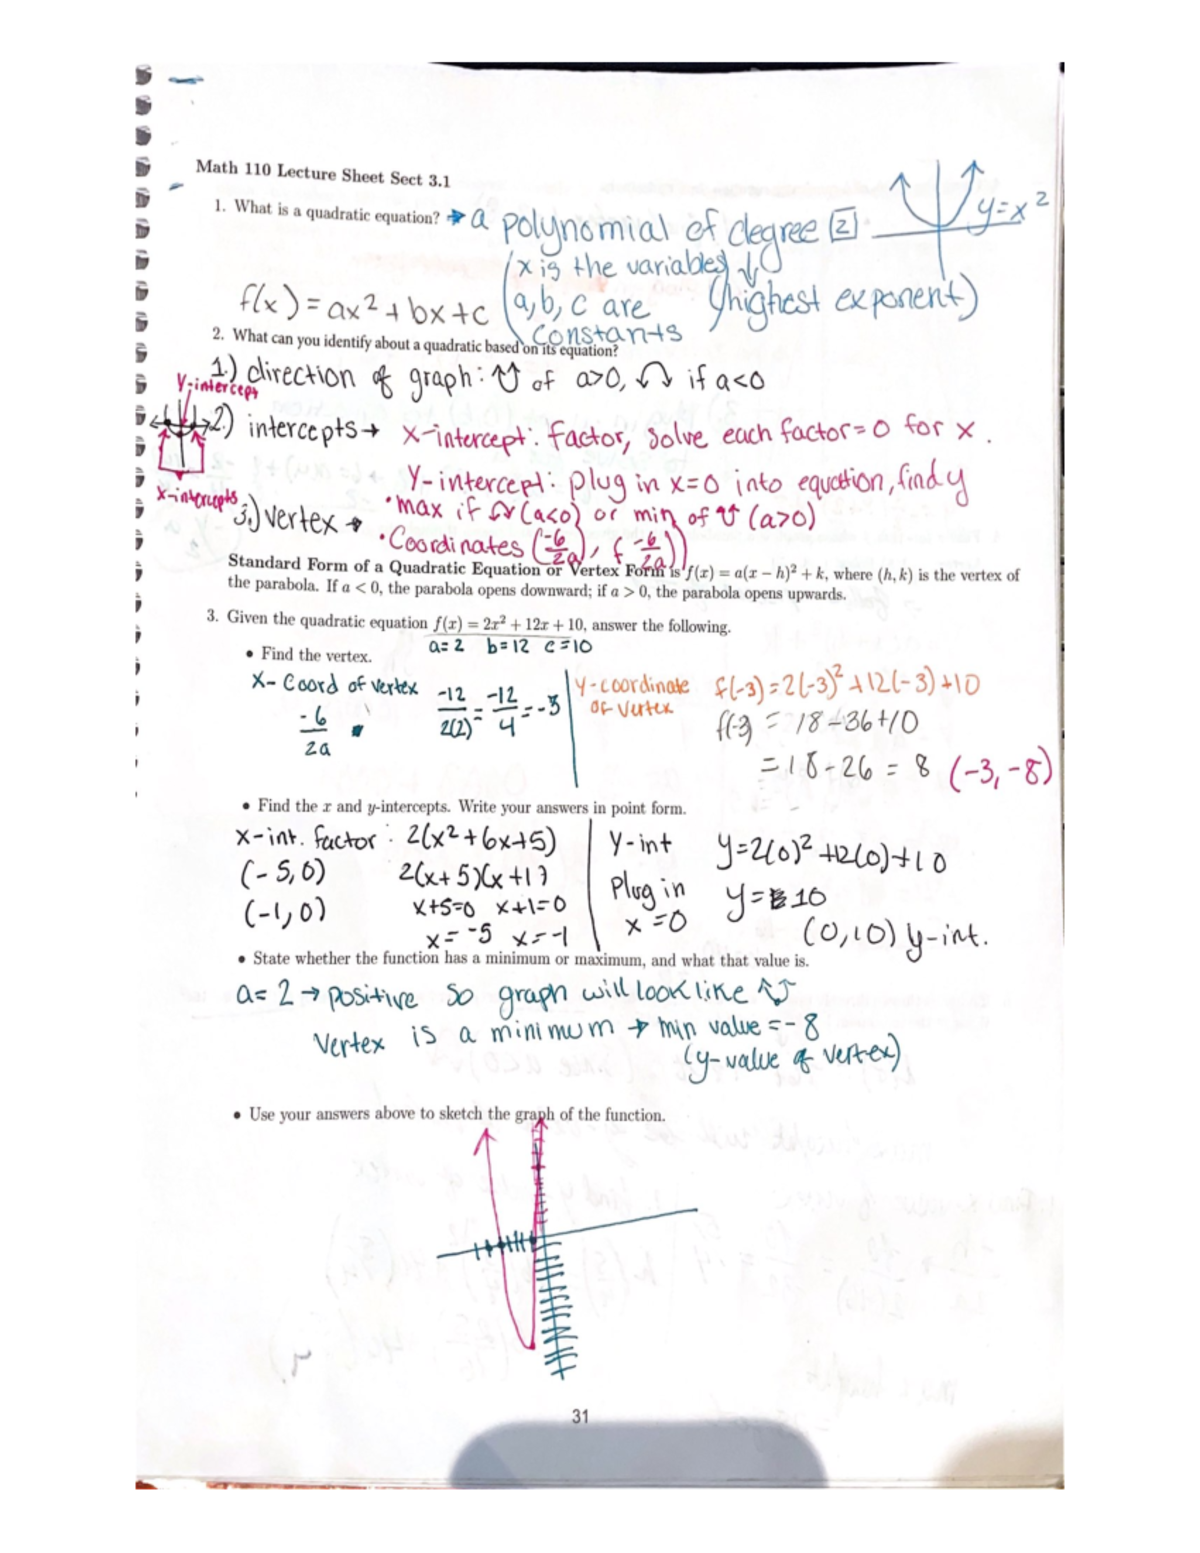 Math 110 Lecture Sheet Sect 3.1
1. What is a quadratic equation? → a polynomial of degree 2
y=x²
x is the variables
f(x) = ax² + bx + c
a, b, c are
(highest exponent)
constants
2. What can you identify about a quadratic based on its equation?
1.) direction of graph: of a>0, if a<0
y-intercept
2) intercepts → x-intercept: factor, solve each factor=0 for x.
Y-intercept: plug in x=0 into equation, find y
x-intercepts
3.) vertex →
• max if (a<0) or min of (a>0)
• Coordinates (-b/2a, f(-b/2a))
Standard Form of a Quadratic Equation or Vertex Form is f(x) = a(x − h)² + k, where (h, k) is the vertex of
the parabola. If a < 0, the parabola opens downward; if a > 0, the parabola opens upwards.
3. Given the quadratic equation f(x) = 2x² + 12x + 10, answer the following.
a=2 b=12 c=10
• Find the vertex.
x-coord of vertex
-b/2a
-12/2(2) = -12/4 = -3
Y-coordinate
of vertex
f(-3) = 2(-3)² + 12(-3) + 10
f(-3) = 18 - 36 + 10
= 18 - 26 = 8 (-3, -8)
• Find the x and y-intercepts. Write your answers in point form.
x-int. factor: 2(x² + 6x + 5)
(-5, 0) 2(x+5)(x+1)
(-1, 0) x+5=0 x+1=0
x=-5 x=-1
Y-int y=2(0)² + 12(0) + 10
Plug in y=10
x=0 (0,10) y-int.
• State whether the function has a minimum or maximum, and what that value is.
a= 2 → positive so graph will look like
Vertex is a minimum → min value = -8
(y-value of vertex)
• Use your answers above to sketch the graph of the function.
31